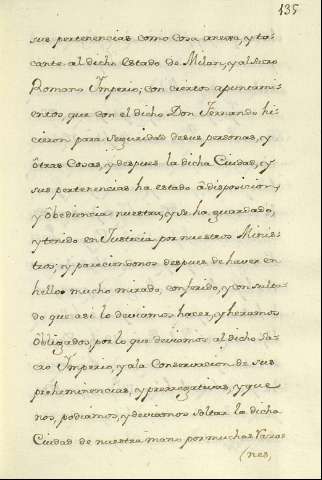 135
sus pertenencias como cosa anexa, y to-
cante al dicho Estado de Milan, y al sacro
Romano Imperio; con ciertos apuntami-
entos, que con el dicho Don Fernando hi-
cieron para seguridad de sus personas, y
ôtras Cosas, y despues la dicha Ciudad, y
sus pertenencias ha estado â disposicion
y ôbediencia nuestra, y se ha guardado,
y tenido en Justicia por nuestros Minis-
tros; y pareciendonos despues de haver en
hello mucho mirado, conferido, y consulta-
do que asi lo deviamos hacer, y heramos
ôbligados, por lo que deviamos al dicho Sa-
cro Imperio, y ala Conservacion de sus
preheminencias, y prerrogativas, y que
nos, podiamos, y deviamos soltar la dicha
Ciudad de nuestra mano por muchas razo
(nes,